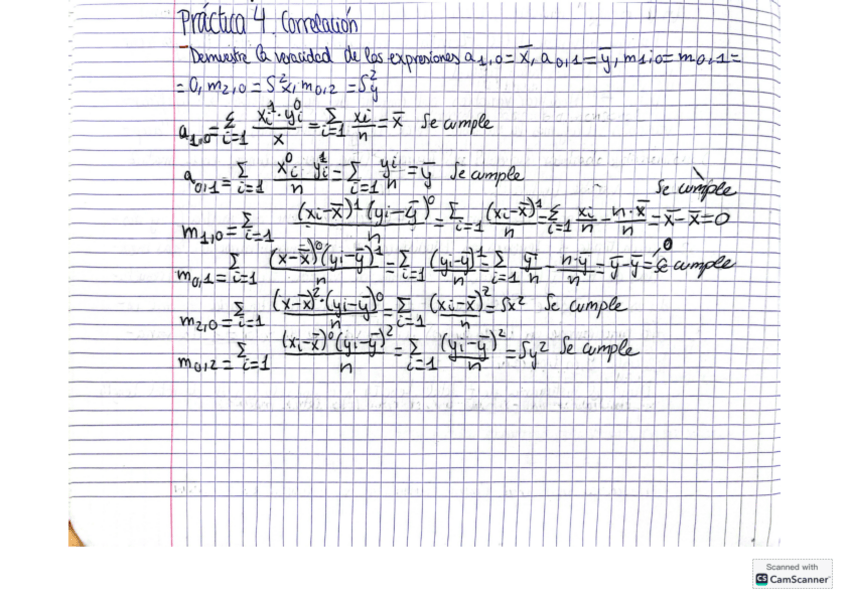 Práctica 4. Correlación
- Demuestre la veracidad de las expresiones a₁,₀ = x̄, a₀,₁ = ȳ, m₁,₀ = m₀,₁ =
= 0, m₂,₀ = S²x, m₀,₂ = S²y
a₁,₀ = Σ i=1 xi¹·yi⁰/x = Σ i=1 xi/n = x̄ Se cumple
a₀,₁ = Σ i=1 xi⁰ yi¹/n = Σ i=1 yi/n = ȳ Se cumple
Se cumple
m₁,₀ = Σ i=1 (xi-x̄)¹(yi-ȳ)⁰/n = Σ i=1 (xi-x̄)¹/n = Σ i=1 xi/n - n·x̄/n = x̄-x̄=0
m₀,₁ = Σ i=1 (x-x̄)⁰(yi-ȳ)¹/n = Σ i=1 (yi-ȳ)¹/n = Σ i=1 yi/n - n·ȳ/n = ȳ-ȳ=0 Se cumple
m₂,₀ = Σ i=1 (x-x̄)²·(yi-ȳ)⁰/n = Σ i=1 (xi-x̄)²/n = Sx² Se cumple
m₀,₂ = Σ i=1 (xi-x̄)⁰(yi-ȳ)²/n = Σ i=1 (yi-ȳ)²/n = Sy² Se cumple
Scanned with
CS CamScanner